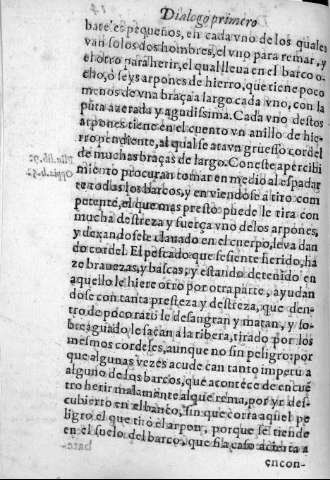 Dialogo primero
bateles pequeños, en cada vno de los quales
van solos dos hombres, el vno para remar, y
el otro para herir, el qual lleua en el barco o-
cho, o seys arpones de hierro, que tiene poco
menos de vna braça a largo cada vno, con la
púta azerada y agudissima. Cada vno destos
arpones tiene en el cuento vn anillo de hie-
rro pendiente, al qual se ata vn gruesso cordel
de muchas braças de largo. Con este apercibi
miento procuran tomar en medio al espadar
te todas los barcos, y en viendose a tiro com
petente, el que mas presto puede le tira con
mucha destreza y fuerça vno de los arpones,
y dexandosele clauado en el cuerpo, leva dan
do cordel. El pescado que se siente herido, ha
ze brauezas, y bascas, y estando detenido en
aquello le hiere otro por otra parte, ayudan
dose con tanta presteza y destreza, que den-
tro de poco rató le desangran y matan, y so-
breaguado le sacan a la ribera, tirado por los
mesmos cordeles, aunque no sin peligro: por
que algunas vezes acude con tanto impetu a
alguno de los barcos, que acontece de encué
tro herir malamente al que rema, por yr des-
cubierto en el banco, sin que corra aquel pe
ligro el que tiró el arpon, porque se tiende
en el suelo del barco, que si a caso acierta a
encon-